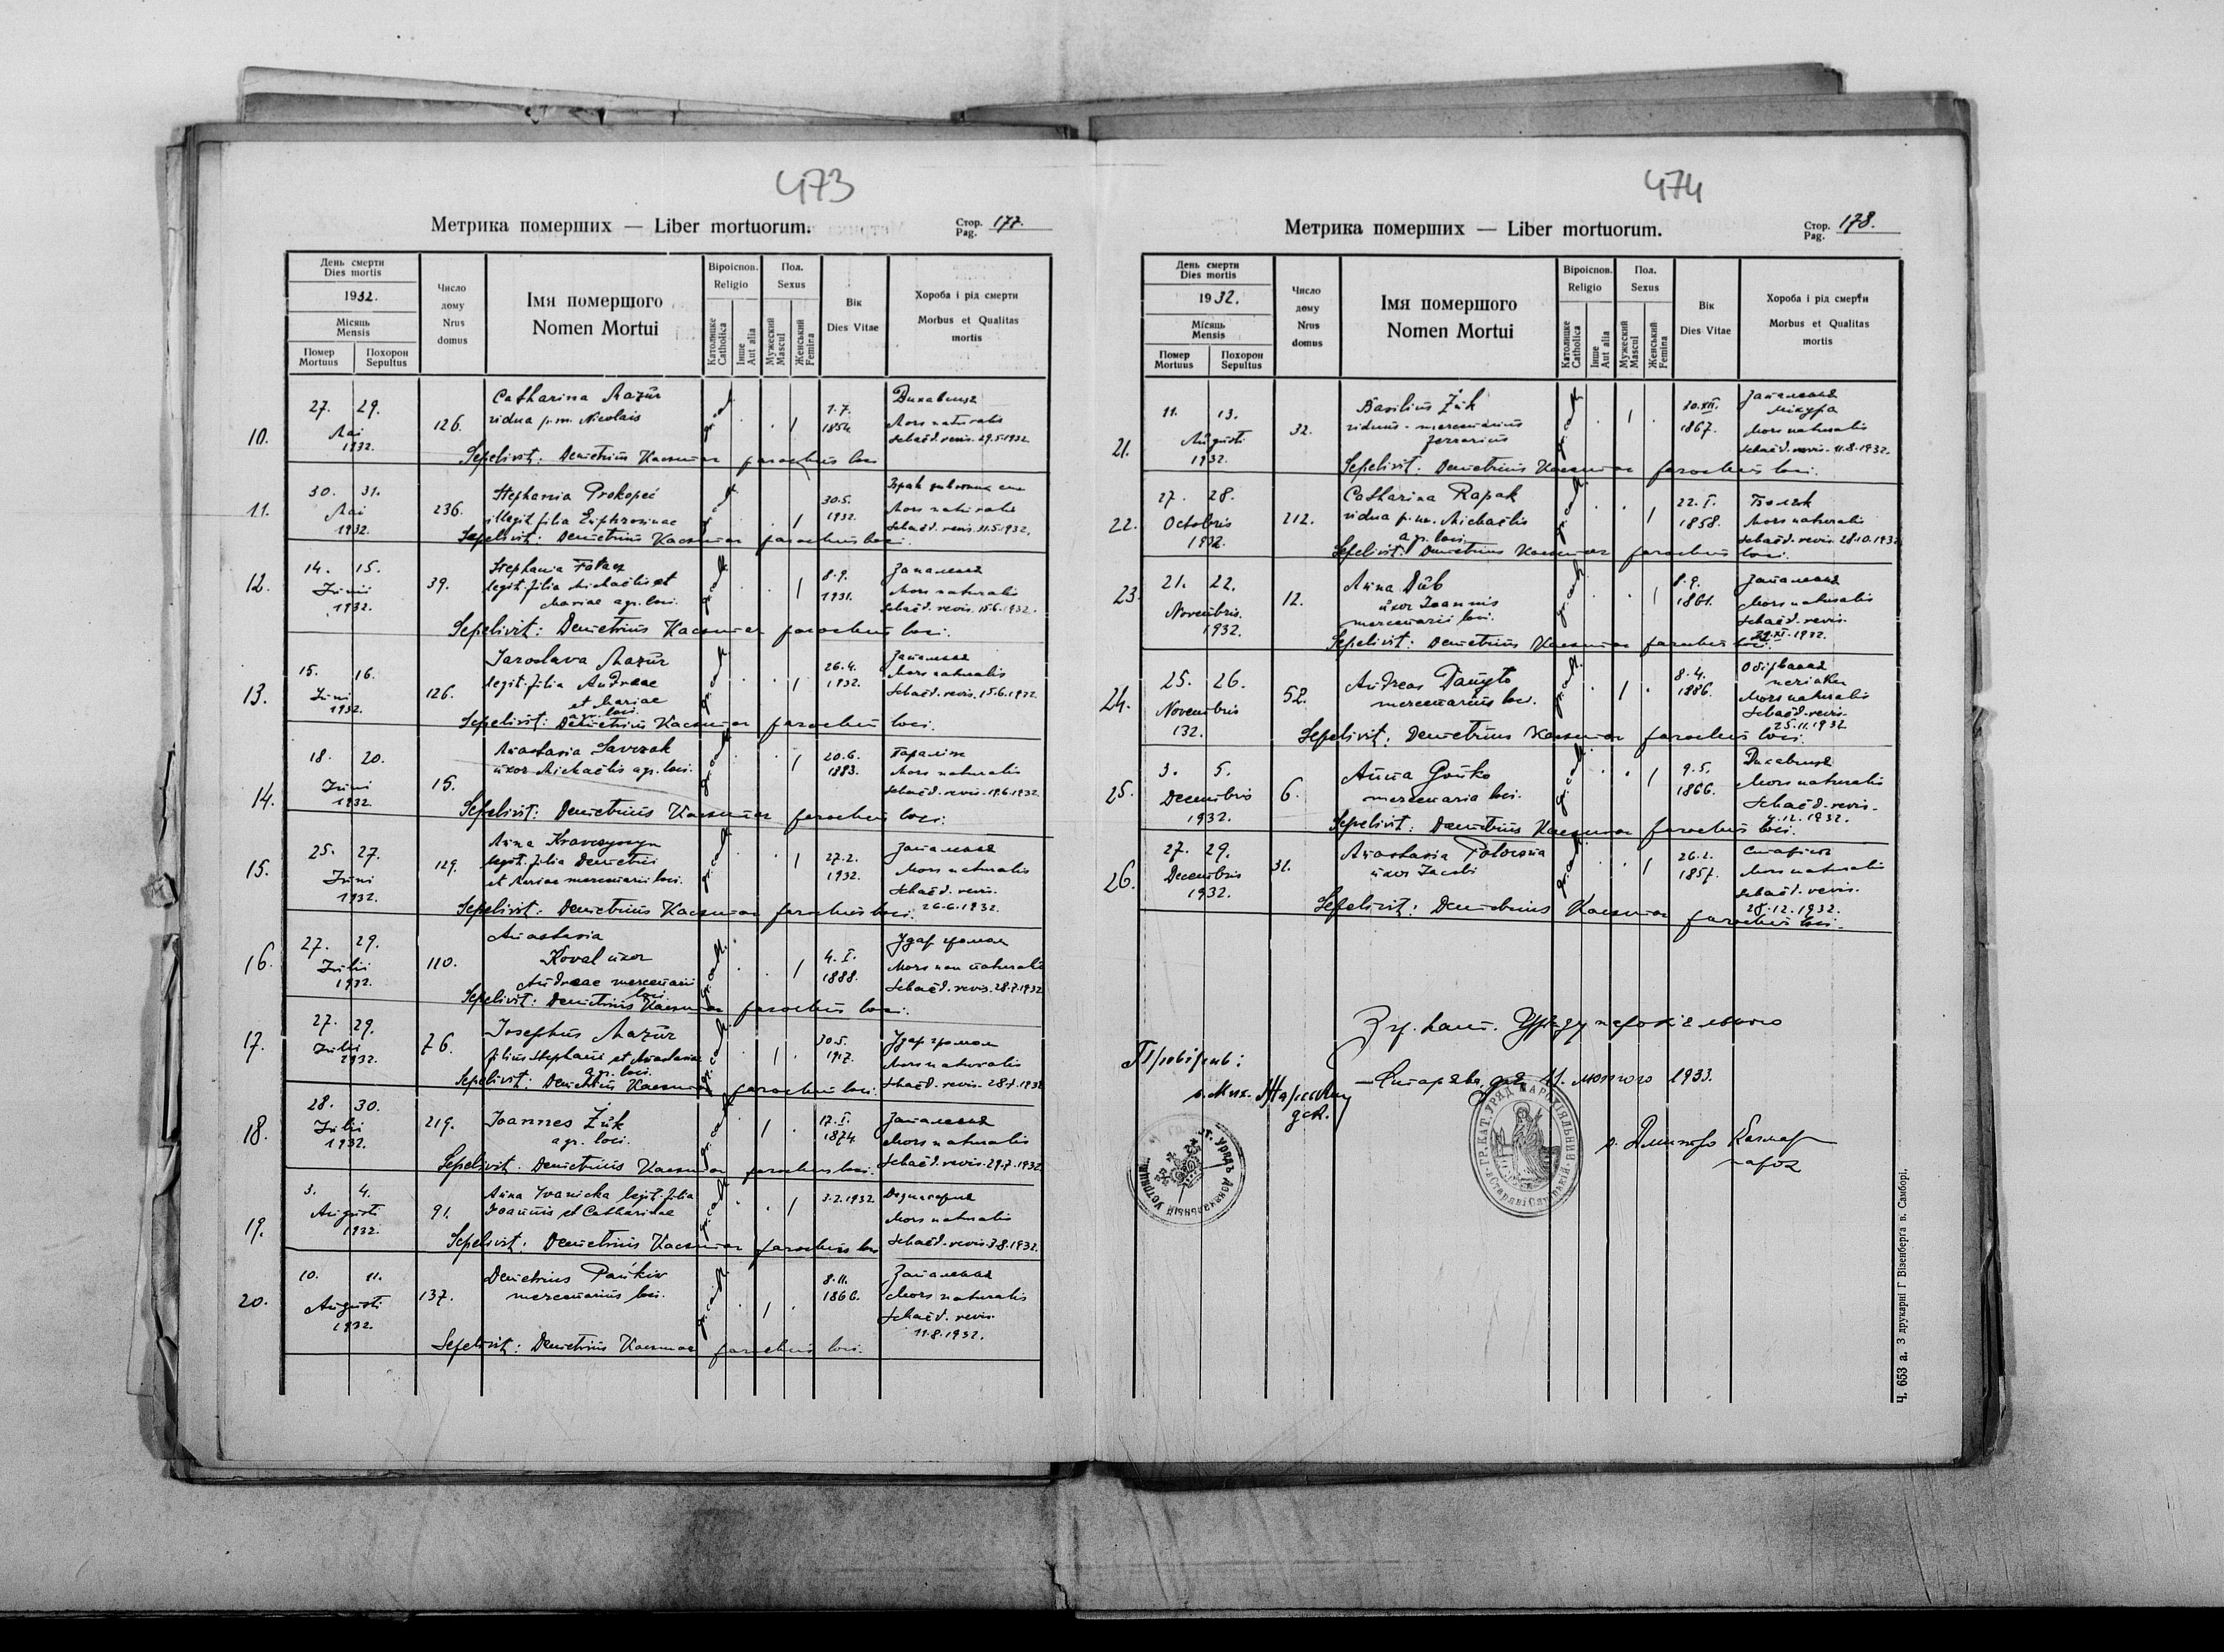 473
Метрика померших — Liber mortuorum.
Стор. Pag. 177.
День смерти Dies mortis
1932.
Місяць Mensis
Помер Mortuus
Похорон Sepultus
Число дому Nrus domus
Імя помершого Nomen Mortui
Віроіспов. Religio
Католицке Catholica
Інше Aut alia
Пол. Sexus
Мужеский Mascul
Женський Femina
Вік Dies Vitae
Хороба і рід смерти Morbus et Qualitas mortis
10. 27. 29. Mai 1932. 126.
Catharina Mazur
vidua p.m. Nicolais
gr. cath. 1 1.7. 1854.
Дихавиця
Mors naturalis
Schaed. revis. 29.5.1932
Sepelivit: Demetrius Kaczmar parochus loci
11. 30. 31. Mai 1932. 236.
Stephania Prokopeć
illegit. filia Euphrosinae
gr. cath. 1 30.5. 1932.
Mors naturalis
Sepelivit: Demetrius Kaczmar parochus loci.
12. 14. 15. Junii 1932. 39.
Stephania
legit. filia Michaëlis et
Mariae agr. loci.
gr. cath. 1 8.9. 1931.
Запалення
Mors naturalis
Schaed. revis. 15.6.1932.
Sepelivit: Demetrius Kaczmar parochus loci.
13. 15. 16. Juni 1932. 126.
Jaroslava Mazur
legit. filia Andreae
et Mariae
agr. loci.
gr. cath. 1 26.4. 1932.
Запалення
Mors naturalis
Schaed. revis. 15.6.1932
Sepelivit: Demetrius Kaczmar parochus loci.
14. 18. 20. Juni 1932 15.
Anastasia Savczak
uxor Michaëlis agr. loci.
gr. cath. 1 20.6. 1883.
Параліж
Mors naturalis
Schaed. revis. 19.6.1932
Sepelivit: Demetrius Kaczmar parochus loci.
15. 25. 27. Juni 1932. 129.
Anna
legit. filia Demetrii
et Mariae mercenarii loci.
gr. cath. 1 27.2. 1932.
Запалення
Mors naturalis
Schaed. revis.
26.6.1932.
Sepelivit: Demetrius Kaczmar parochus loci.
16. 27. 29. Julii 1932. 110.
Anastasia
Koval uxor
Andreae mercenarii
loci.
gr. cath. 1 4.I. 1888.
Удар громом
Mors non naturalis
Schaed. revis. 28.7.1932
Sepelivit: Demetrius Kaczmar parochus loci.
17. 27. 29. Julii 1932. 76.
Josephus Mazur
filius Stephani et Anastasiae
agr. loci.
gr. cath. 1 30.5. 1917.
Удар громом
Mors naturalis
Schaed. revis. 28.7.1932
Sepelivit: Demetrius Kaczmar parochus loci.
18. 28. 30. Julii 1932. 219.
Joannes Żuk
agr. loci.
gr. cath. 1 17.I. 1874
Запалення
Mors naturalis
Schaed. revis. 29.7.1932
Sepelivit. Demetrius Kaczmar parochus loci.
19. 3. 4. Augusti 1932. 91.
Anna Ivanicka legit. filia
Joannis et Catharinae
gr. cath. 1 2.2.1932
Mors naturalis
Schaed. revis. 3.8.1932.
Sepelivit: Demetrius Kaczmar parochus loci
20. 10. 11. Augusti 1932. 137.
Demetrius Pańkiw
mercenarius loci.
gr. cath. 1 8.11. 1866.
Запалення
Mors naturalis
Schaed. revis.
11.8.1932.
Sepelivit: Demetrius Kaczmar parochus loci.
474
Метрика померших — Liber mortuorum.
Стор. Pag. 178.
День смерти Dies mortis
1932.
Місяць Mensis
Помер Mortuus
Похорон Sepultus
Число дому Nrus domus
Імя помершого Nomen Mortui
Віроіспов. Religio
Католицке Catholica
Інше Aut alia
Пол. Sexus
Мужеский Mascul
Женський Femina
Вік Dies Vitae
Хороба і рід смерти Morbus et Qualitas mortis
21. 11. 13. Augusti 1932. 32.
Basilius Żuk
viduus - mercenarius
gr. cath. 1 30.XII. 1867.
Запалення
міхура
Mors naturalis
Schaed. revis. 11.8.1932.
Sepelivit: Demetrius Kaczmar parochus loci.
22. 27. 28. Octobris 1932. 212.
Catharina Rapak
vidua p.m. Michaëlis
agr. loci.
gr. cath. 1 22.I. 1858.
Mors naturalis
Schaed. revis. 28.10.1932
Sepelivit: Demetrius Kaczmar parochus loci.
23. 21. 22. Novembris. 1932. 12.
Anna Dub
uxor Joannis
mercenarii loci.
gr. cath. 1 8.9. 1861.
Запалення
Mors naturalis
Schaed. revis.
Sepelivit: Demetrius Kaczmar parochus loci.
24. 25. 26. Novembris 132. 52.
Andreas
mercenarius loci.
gr. cath. 1 8.4. 1886.
Mors naturalis
Schaed. revis.
25.11.1932
Sepelivit: Demetrius Kaczmar parochus loci.
25. 3. 5. Decembris 1932. 6.
Anna Gońko
mercenaria loci.
gr. cath. 1 9.5. 1866.
Дихавиця
Mors naturalis
Schaed. revis.
4.12.1932.
Sepelivit: Demetrius Kaczmar parochus loci.
26. 27. 29. Decembris 1932. 31.
Anastasia
uxor Jacobi
gr. cath. 1 26.2. 1857.
Mors naturalis
Schaed. revis.
28.12.1932.
Sepelivit: Demetrius Kaczmar parochus loci.
Гр. кат. Уряду парохіяльного
Провірив:
Старява, дня 11. лютого 1933.
о. Мих.
дек.
о. Дмитро Качмар
парох
ГР. КАТ. УРЯД ПАРОХІЯЛЬНИЙ
Ч. 653 а. З друкарні Г Візенберга в. Самборі.